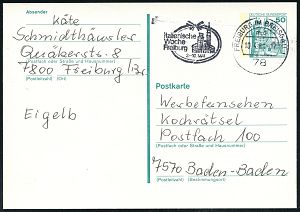 Absender
Käte
Schmidthäusler
Quäkerstr. 8
7800 Freiburg/Br.
(Postleitzahl) (Ort)
Eigelb
Italienische
Woche
Freiburg
DEUTSCHE BUNDESPOST
50
FREIBURG IM BREISGAU
78
Postkarte
Werbefernsehen
Kochrätsel
Postfach 100
(Postfach oder Straße und Hausnummer)
7570 Baden-Baden
(Postleitzahl) (Bestimmungsort)